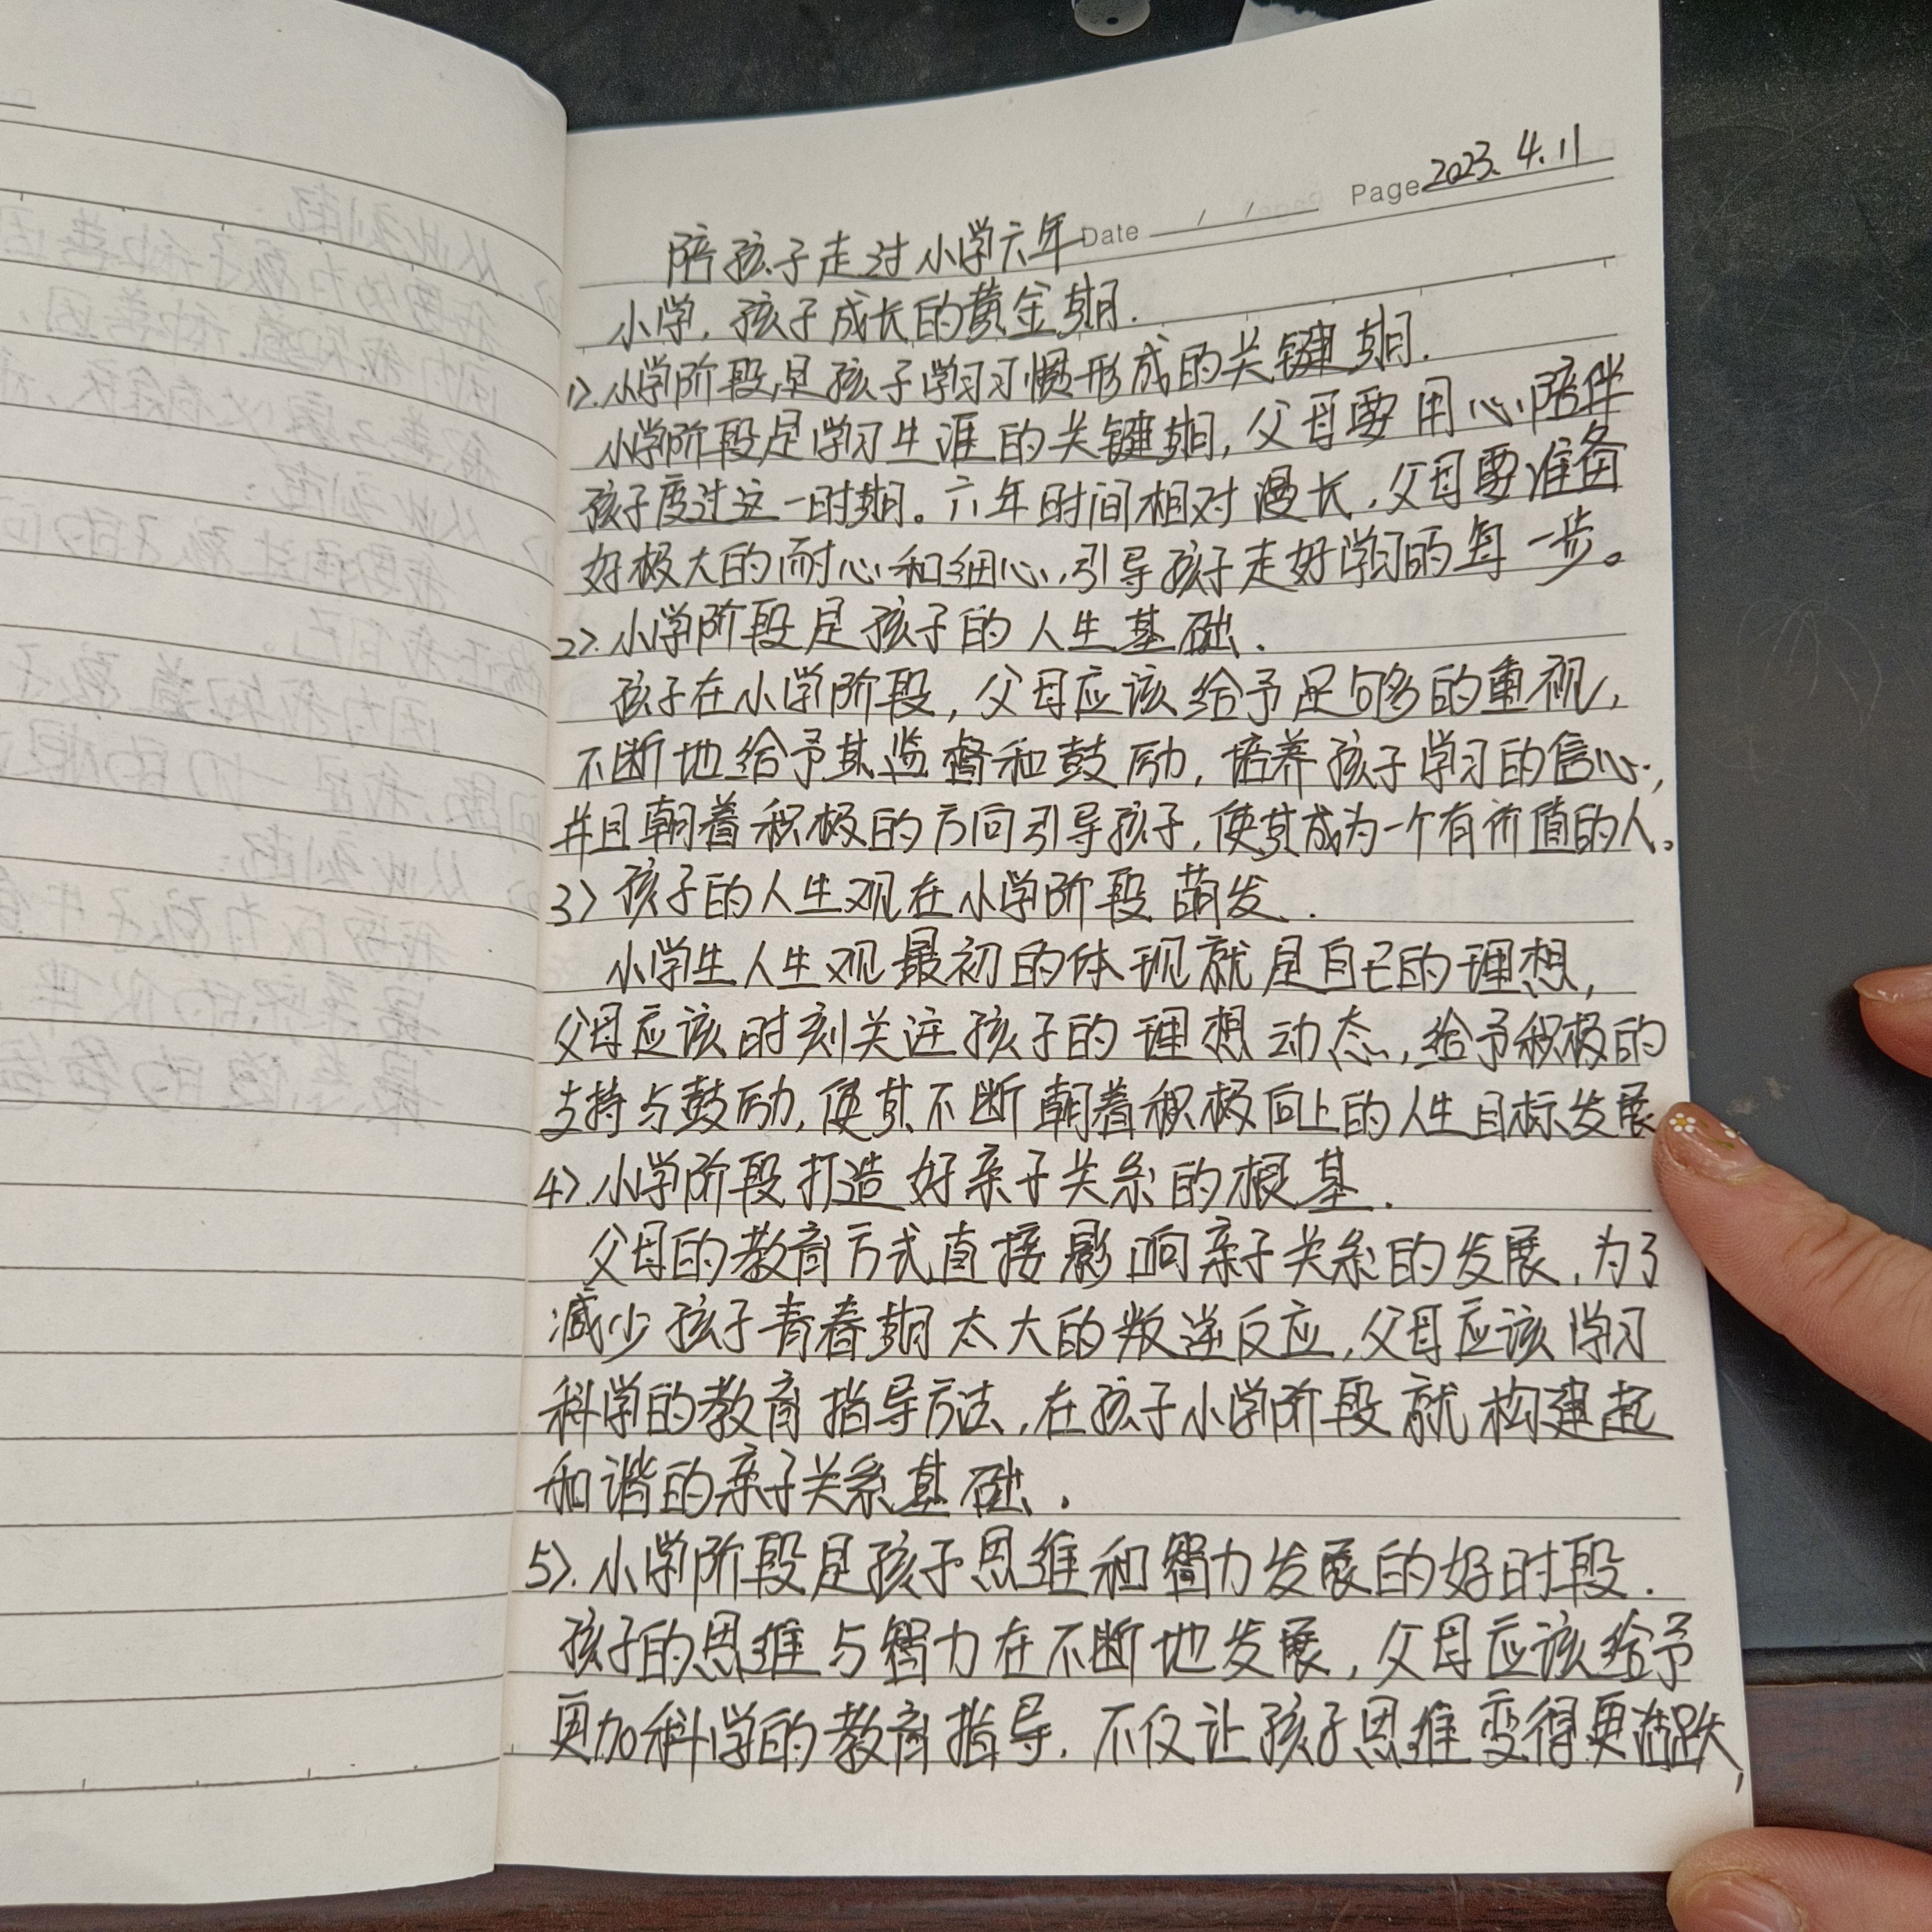 Page 2023.4.11
Date / /
陪孩子走过小学六年
小学，孩子成长的黄金期.
1>.小学阶段是孩子学习习惯形成的关键期.
小学阶段是学习生涯的关键期，父母要用心陪伴
孩子度过这一时期。六年时间相对漫长，父母要准备
好极大的耐心和细心，引导孩子走好学习的每一步。
2>.小学阶段是孩子的人生基础.
孩子在小学阶段，父母应该给予足够多的重视，
不断地给予其监督和鼓励，培养孩子学习的信心，
并且朝着积极的方向引导孩子，使其成为一个有价值的人。
3>孩子的人生观在小学阶段萌发.
小学生人生观最初的体现就是自己的理想，
父母应该时刻关注孩子的理想动态，给予积极的
支持与鼓励，使其不断朝着积极向上的人生目标发展
4>.小学阶段打造好亲子关系的根基.
父母的教育方式直接影响亲子关系的发展，为了
减少孩子青春期太大的叛逆反应，父母应该学习
科学的教育指导方法，在孩子小学阶段就构建起
和谐的亲子关系基础.
5>.小学阶段是孩子思维和智力发展的好时段.
孩子的思维与智力在不断地发展，父母应该给予
更加科学的教育指导，不仅让孩子思维变得更活跃，